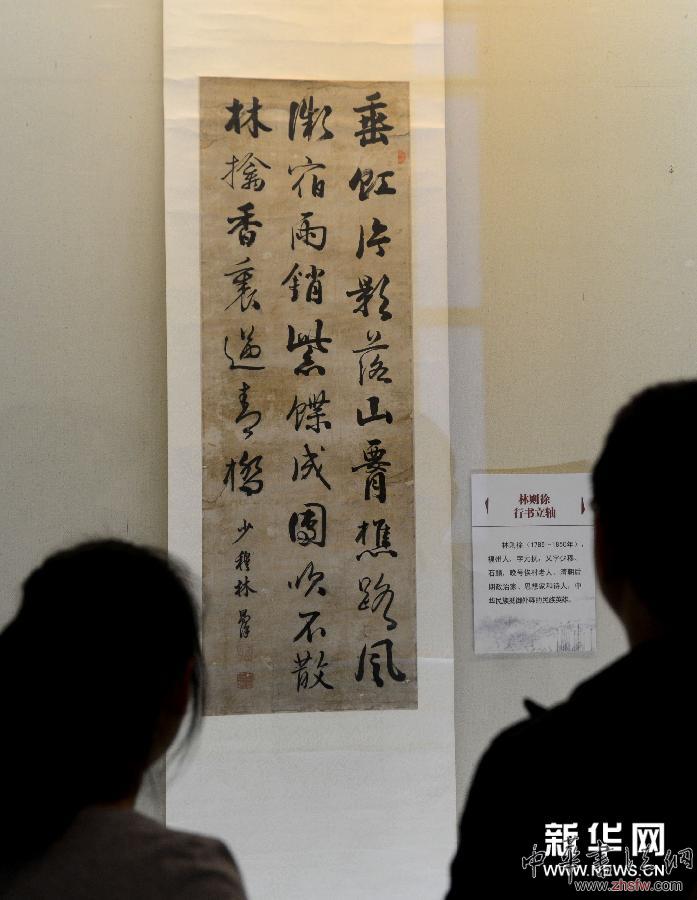 垂虹片影落山腰樵路風
微宿雨銷紫蝶成團吹不散
林檎香裏過青橋
少穆林則徐
林则徐
行书立轴
林则徐(1785-1850年),
福州人,字元抚,又字少穆、
石麟,晚号俟村老人,清朝后
期政治家、思想家和诗人,中
华民族抵御外辱的民族英雄。
新华网
WWW.NEWS.CN
中华书法网
www.zhsfw.com